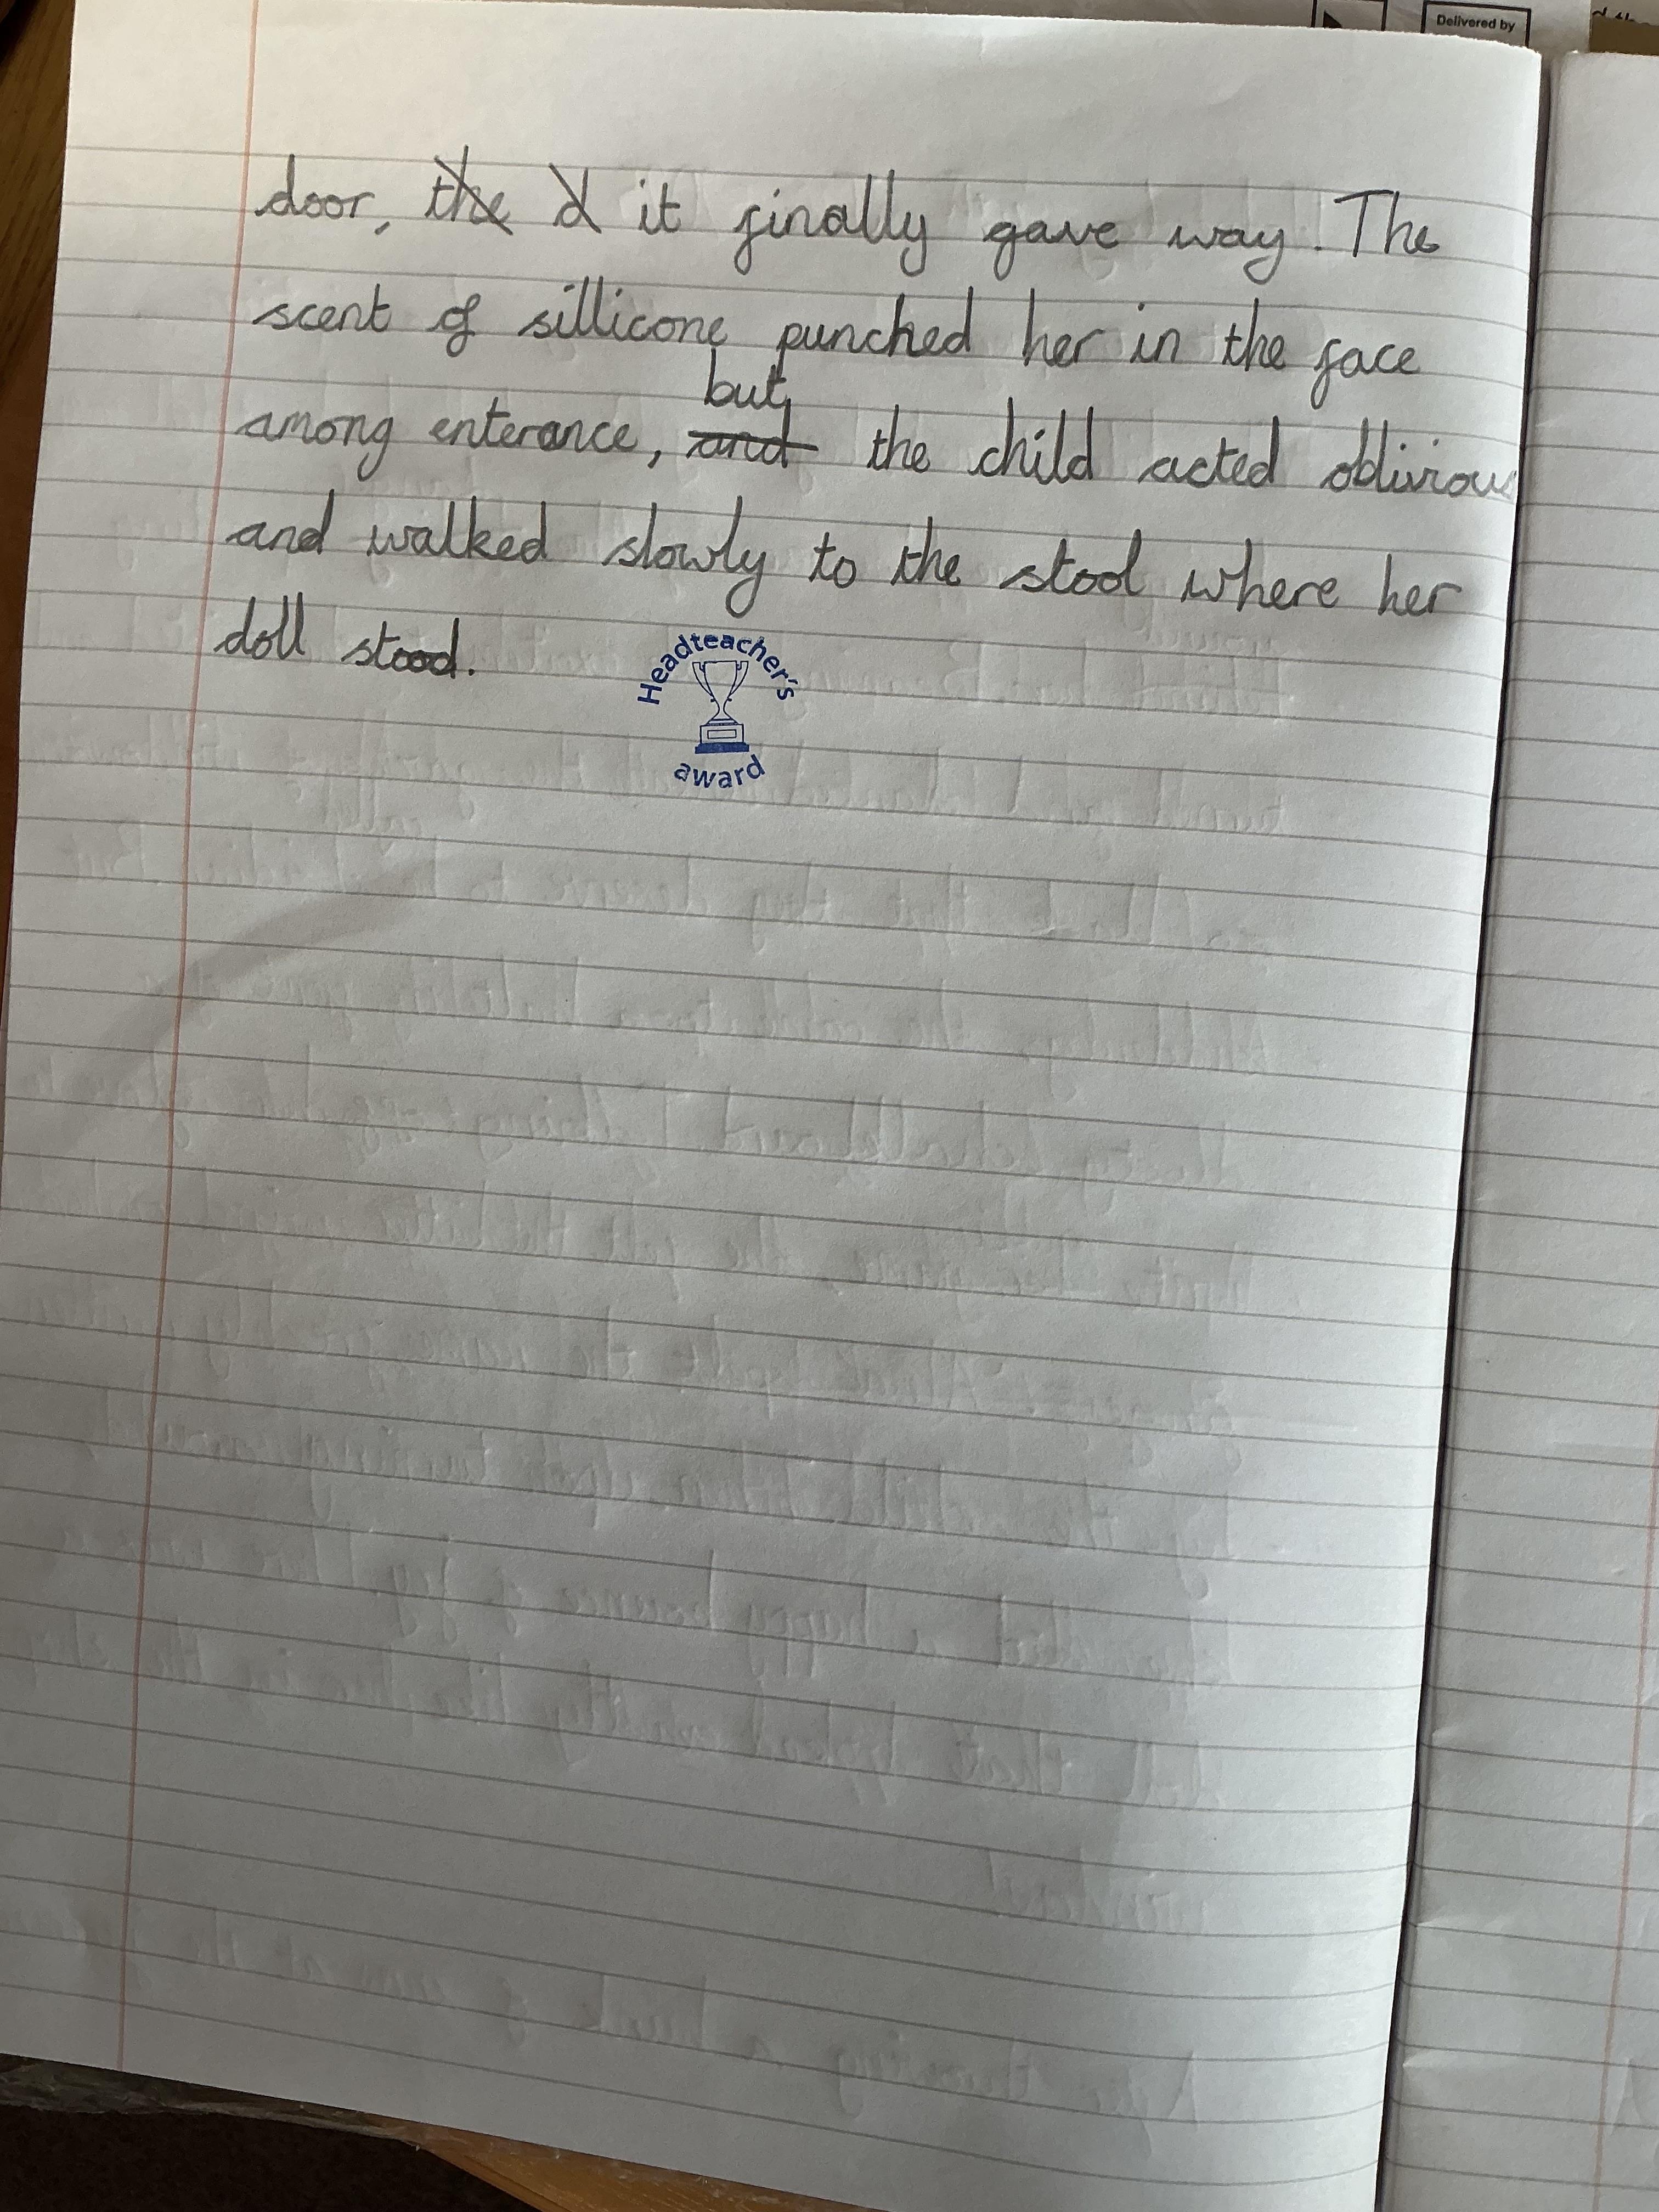 Delivered by
door, the d it finally gave way. The
scent of sillicone punched her in the face
but
among enterance, and the child acted oblivious
and walked slowly to the stool where her
doll stood.
Headteacher's
award